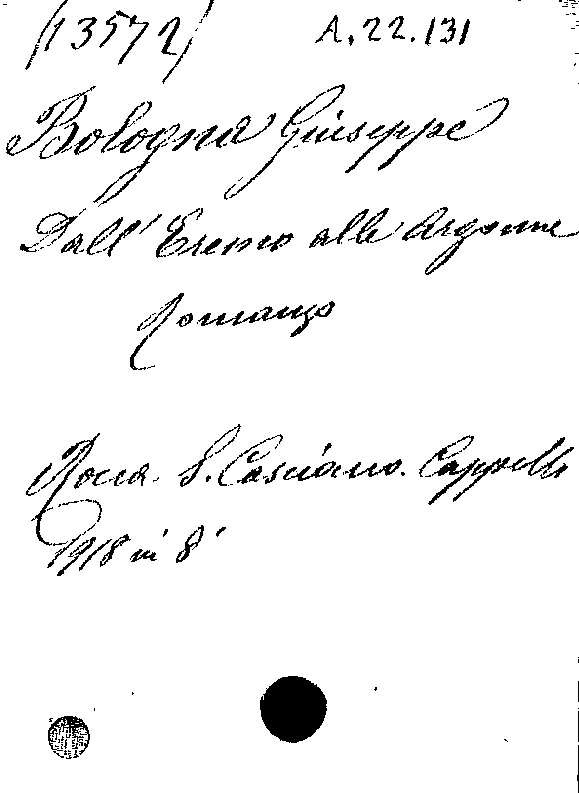 (13572) A.22.131
Bologna Giuseppe
Dall'Eremo alle Argonne
Romanzo
Rocca S. Casciano. Cappelli
1918 in 8°